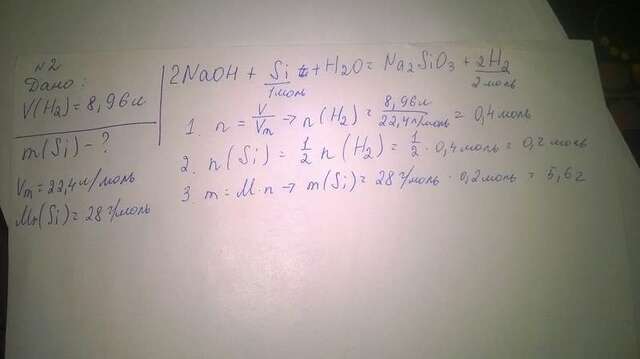 N2
Дано:
V(H₂) = 8,96л
m(Si) - ?
Vm = 22,4л/моль
Mr(Si) = 28 г/моль
2NaOH + Si + H₂O = Na₂SiO₃ + 2H₂
1моль 2моль
1. n = V/Vm → n(H₂) = 8,96л/22,4л/моль = 0,4моль
2. n(Si) = 1/2 n(H₂) = 1/2 · 0,4моль = 0,2моль
3. m = M·n → m(Si) = 28г/моль · 0,2моль = 5,6г